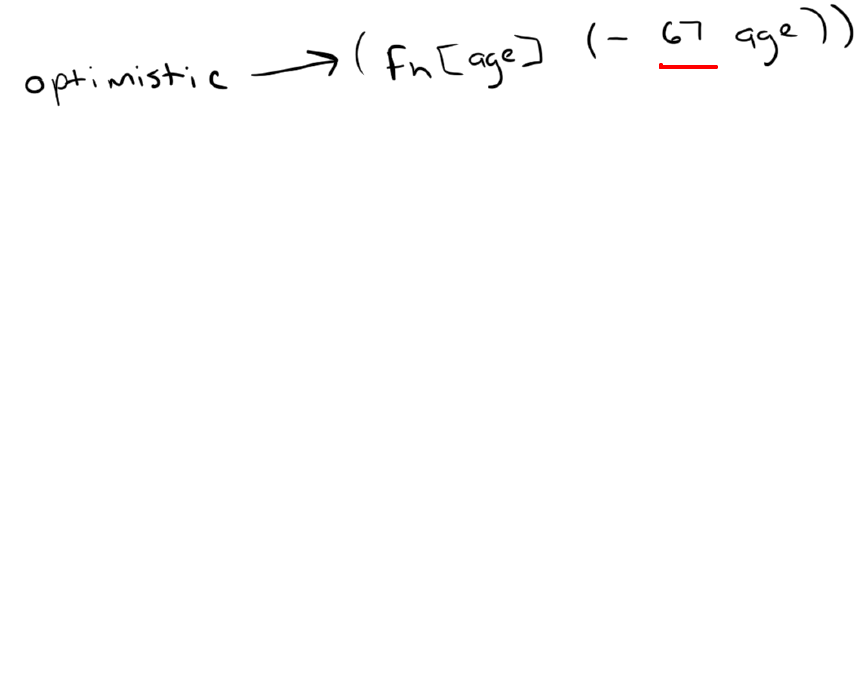 optimistic → (fn[age] (- 67 age))